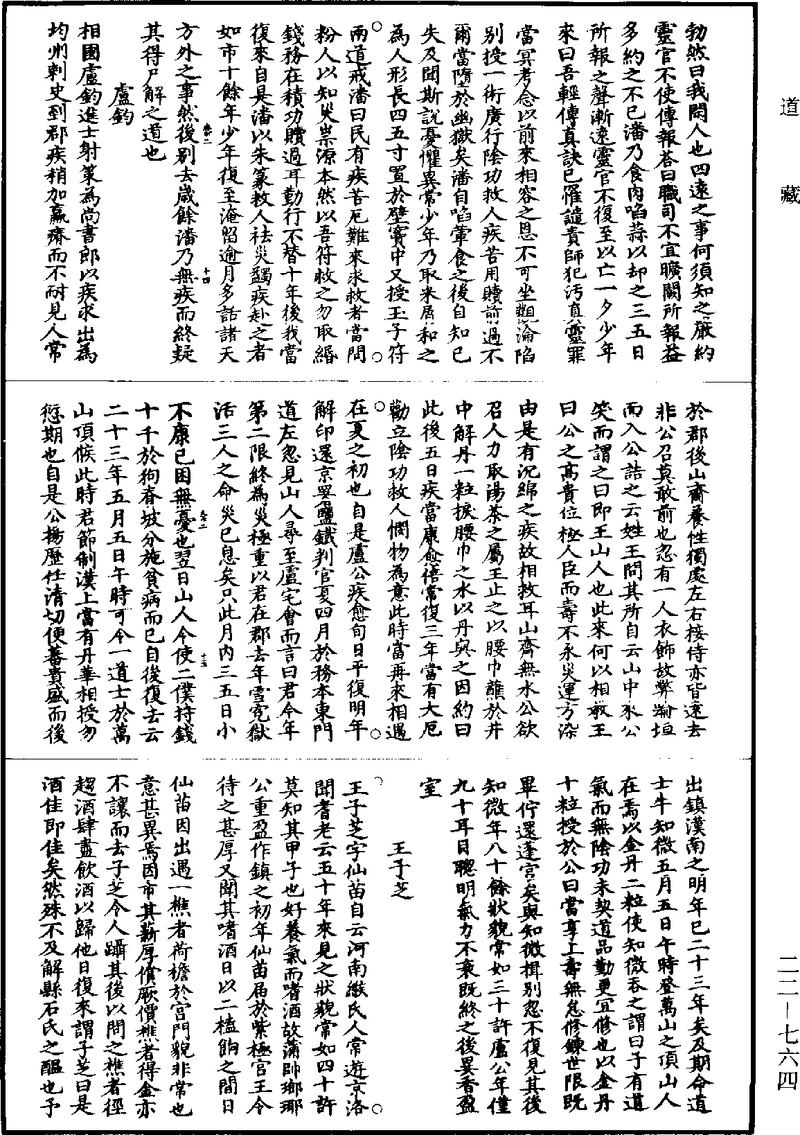 道藏
勃然曰我閽人也四遠之事何須知之嚴約
靈官不使傳報荅曰職司不宜曠闕所報益
多約之不已潘乃食肉啗蒜以却之三五日
所報之聲漸遠靈官不復至以亡一夕少年
來曰吾輕傳真訣已罹譴責師犯污真靈罪
當冥考念以前來相容之恩不可坐觀淪陷
別授一術廣行陰功救人疾苦用贖前過不
爾當墮於幽獄矣潘自啗葷食之後自知已
失及聞斯說憂懼異常少年乃取米屑和之
為人形長四五寸置於壁竇中又授玉子符
兩道戒潘曰民有疾苦厄難來求救者當問
粉人以知災祟源本然以吾符救之勿取緡
錢務在積功贖過耳勤行不替十年後我當
復來自是潘以朱篆救人祛災蠲疾赴之者
如市十餘年少年復至淹留逾月多話諸天
方外之事然後別去歲餘潘乃無疾而終疑
其得尸解之道也
盧鈞
相國盧鈞進士射策為尚書郎以疾求出為
均州刺史到郡疾稍加羸瘠而不耐見人常
於郡後山齋養性獨處左右接侍亦皆遠去
非公召莫敢前也忽有一人衣飾故弊踰垣
而入公詰之云姓王問其所自云山中來公
笑而謂之曰即王山人也此來何以相教王
曰公之高貴位極人臣而壽不永災運方深
由是有沉綿之疾故相救耳山齋無水公欲
召人力取湯茶之屬王止之以腰巾蘸於井
中解丹一粒捩腰巾之水以丹與之因約曰
此後五日疾當康愈倍常復三年當有大厄
勸立陰功救人憫物為意此時當再來相遇
在夏之初也自是盧公疾愈旬日平復明年
解印還京署鹽鐵判官夏四月於務本東門
道左忽見山人尋至盧宅會而言曰君今年
第二限終為災極重以君在郡去年雪冤獄
活三人之命災已息矣只此月內三五日小
不康已困無憂也翌日山人令使二僕持錢
十千於狗脊坡分施貧病而已自後復去云
二十三年五月五日午時可令一道士於萬
山頂候此時君節制漢上當有丹華相授勿
愆期也自是公揚歷任清切便蕃貴盛而後
出鎮漢南之明年已二十三年矣及期命道
士牛知微五月五日午時登萬山之頂山人
在焉以金丹二粒使知微吞之謂曰子有道
氣而無陰功未契道品勤更宜修也以金丹
十粒授於公曰當享上壽無怠修鍊世限既
畢佇還蓬宮矣與知微揖別忽不復見其後
知微年八十餘狀貌常如三十許盧公年僅
九十耳目聰明氣力不衰既終之後異香盈
室
王子芝
王子芝字仙苗自云河南緱氏人常遊京洛
聞耆老云五十年來見之狀貌常如四十許
莫知其甲子也好養氣而嗜酒故蒲帥瑯琊
公重盈作鎮之初年仙苗届於紫極宮王令
待之甚厚又聞其嗜酒日以二榼餉之間日
仙苗因出遇一樵者荷擔於宮門貌非常也
意甚異焉因市其薪厚償厥價樵者得金亦
不讓而去子芝令人躡其後以問之樵者徑
趨酒肆盡飲酒以歸他日復來謂子芝曰是
酒佳即佳矣然殊不及解縣石氏之醖也予
二二—七六四